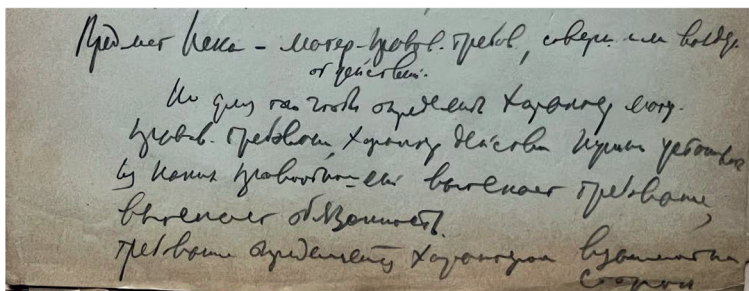 Предмет иска – матер-правов. требов, соверш или воздер.
от действий.
Но для того чтобы определить характер мат.
правов. требован, характер действий нужно установить
из каких правоотношений вытекает требование,
вытекает обязанность.
требование определяется характером взаимоотн.
сторон